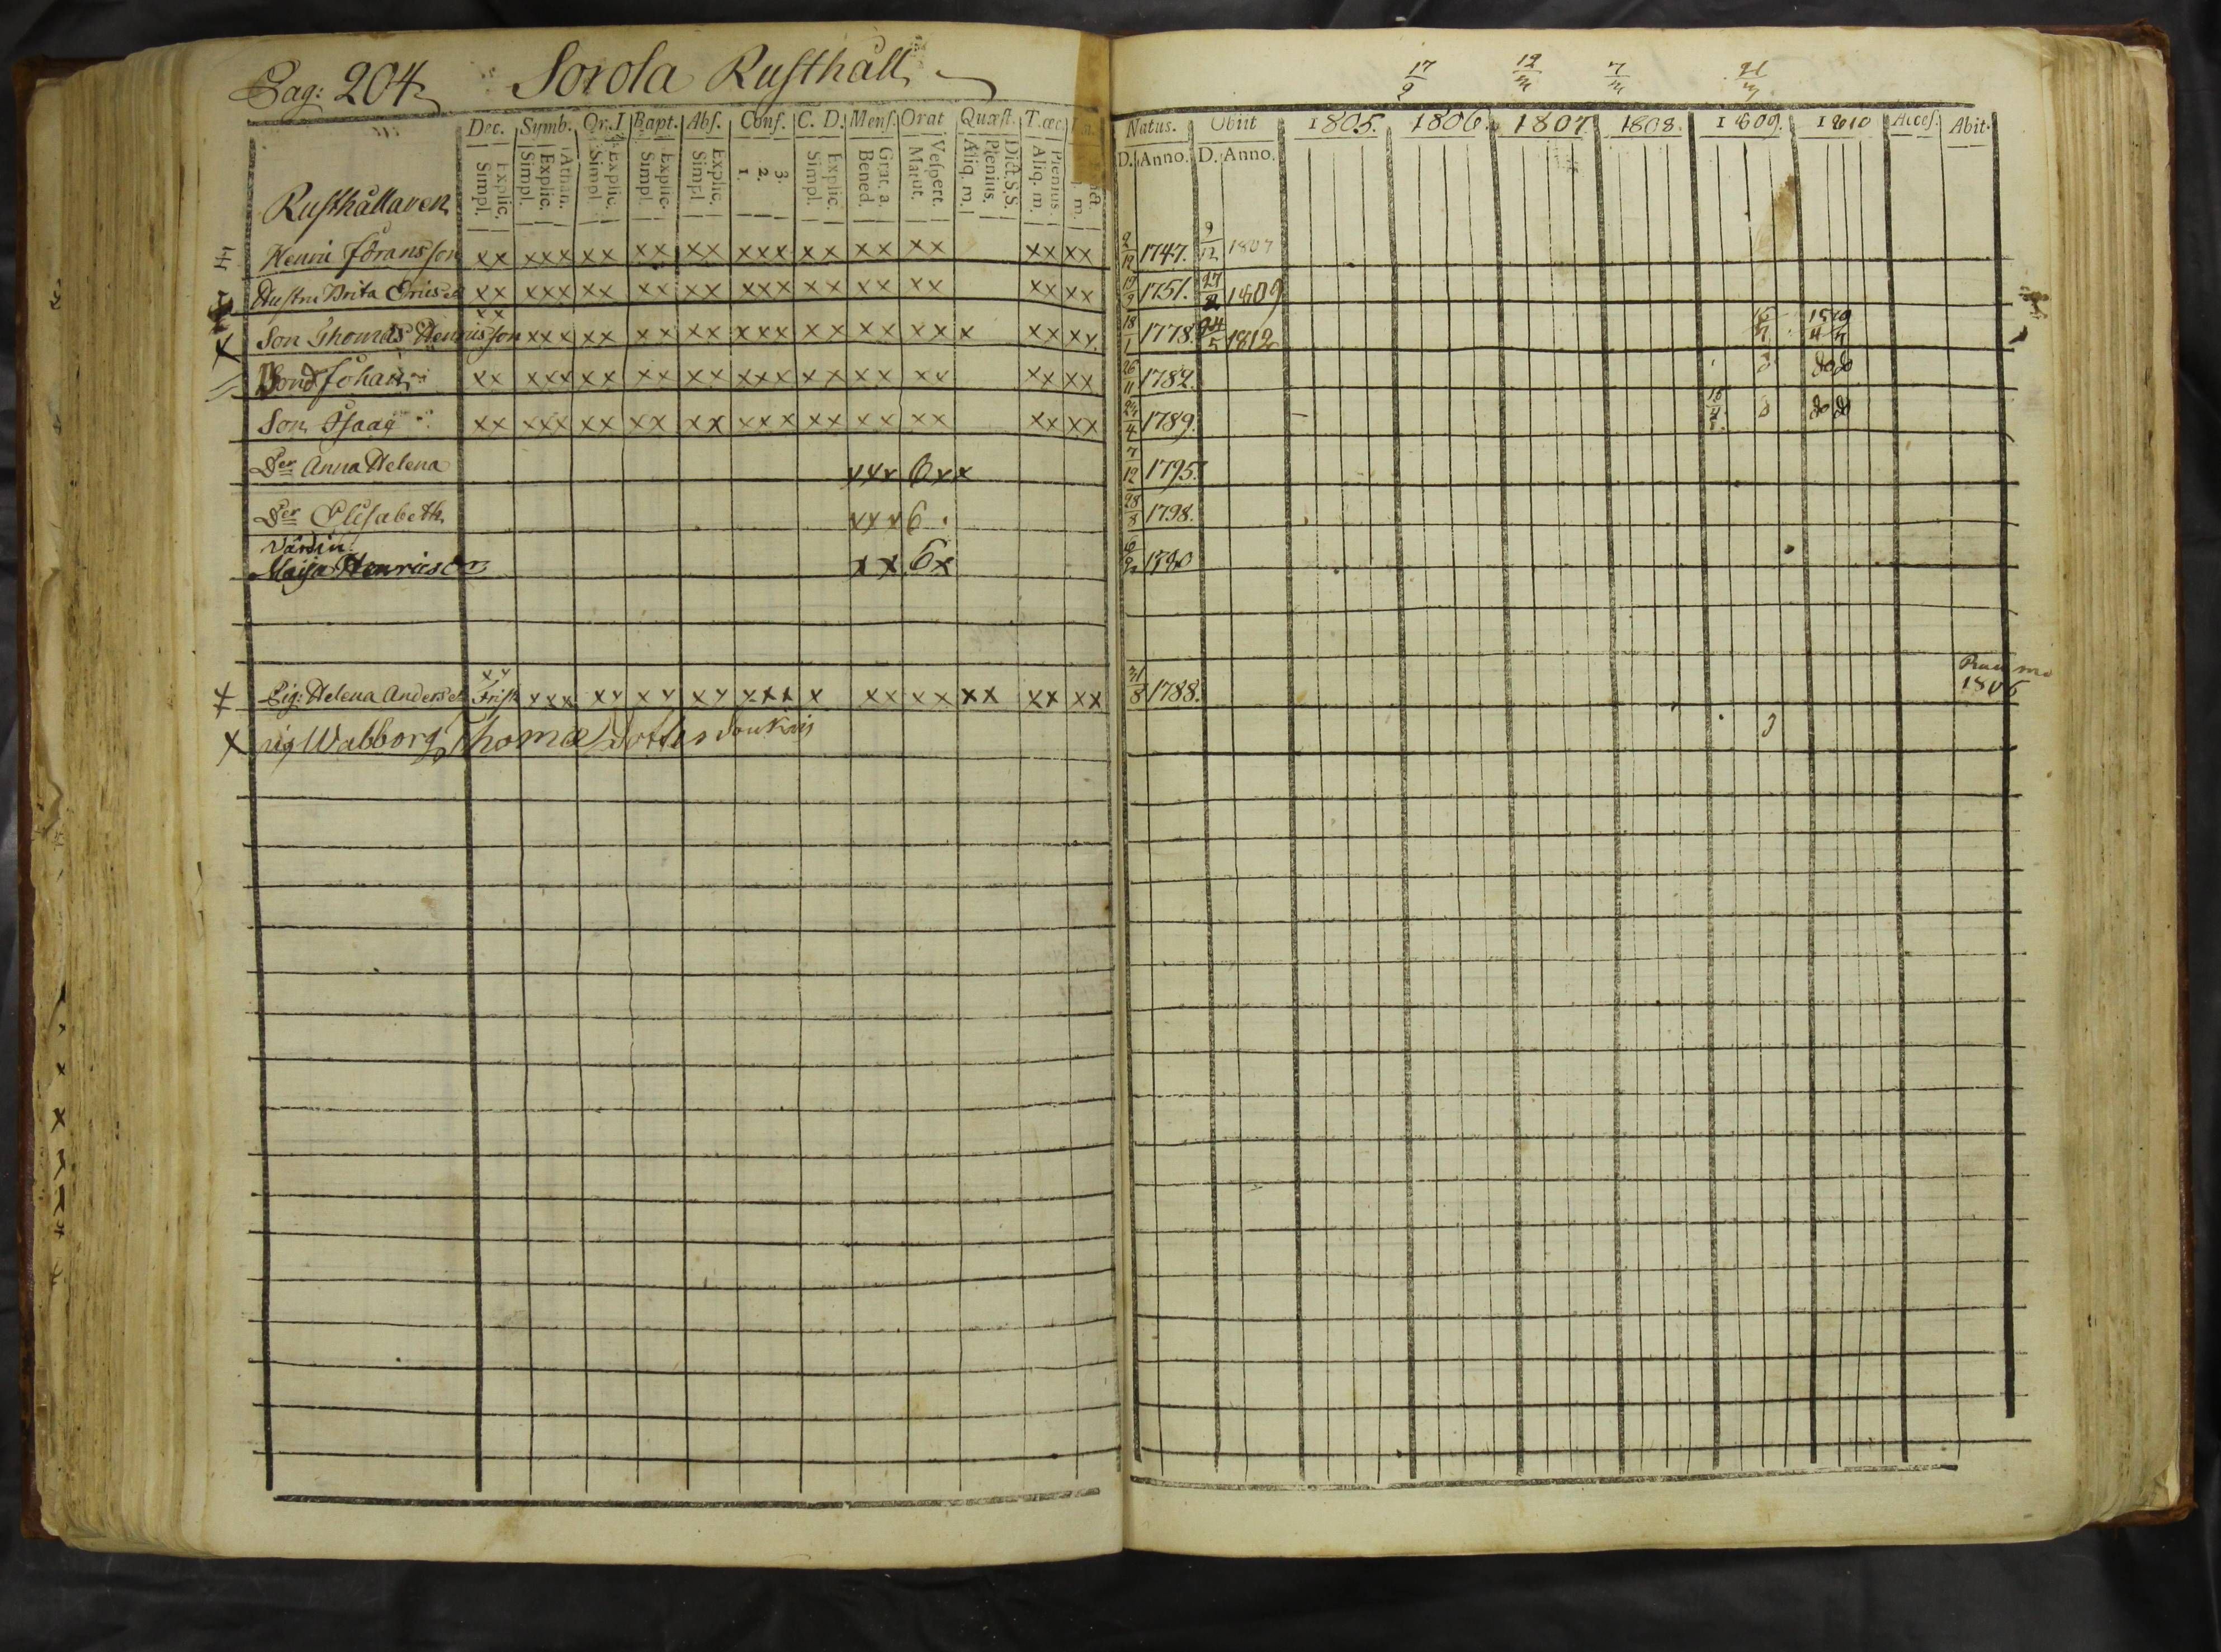 Pag: 204. Sorola Rusthåll
Dec. Symb. Or. I Bapt. Abs. Conf. C. D. Mens. Orat Quæst. T. œc.
Explic. Simpl. Athan. Explic. Simpl. Explic. Simpl. Explic. Simpl. Explic. Simpl. 3. 2. 1. Explic. Simpl. Grat. a. Bened. Vespert. Matut. Dict. S.S. Plenius. Aliq. m. Plenius. Aliq. m.
Rusthållaren
Henric Jöransson xx xxx xx xx xx xxx xx xx xx xx xx
Hustru Brita Ericsd. xx xxx xx xx xx xxx xx xx xx xx xx
xx
Son Thomas Henricsson xxx xx xx xx xxx xx xx xx x xx xx
Son Johan xx xxx xx xx xx xxx xx xx xx xx xx
Son Isaac xx xxx xx xx xx xxx xx xx xx xx xx
Der Anna Helena xxx 6xx
Der Elisabeth xxx 6
Värdin
Maija Henricsd:r xx 6x
xx
Pig: Helena Andersd. Frisk xxx xx xx xx xxx x xx xx xx xx xx
pig Walborg Thomæ Dotter
17/2 12/3 7/3
Natus. Obiit 1805. 1806. 1807. 1808. 1809. 1810 Acces. Abit.
D. Anno. D. Anno.
2/12 1747. 9/12 1807
17/9 1751. 27/2 1809
18/1 1778. 24/5 1812
26/11 1782.
24/4 1789.
7/12 1795.
28/8 1798.
1780
31/8 1788. 1806